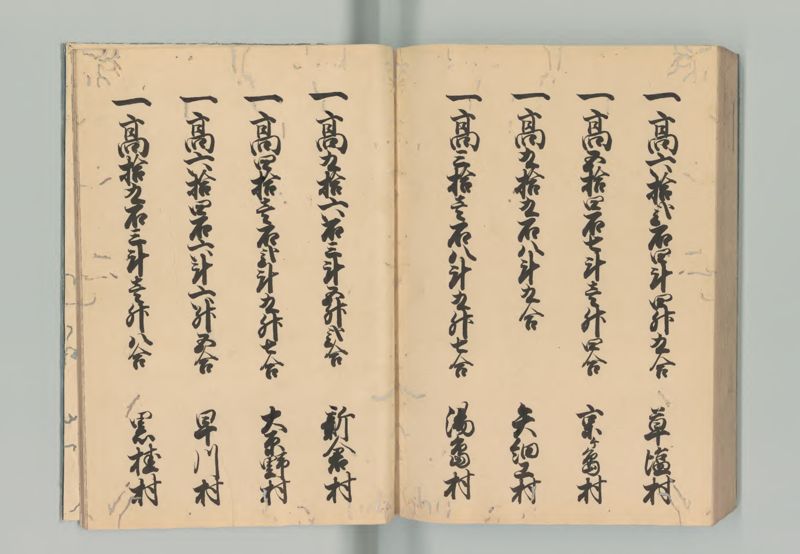 一高六拾弐石四斗四升九合 草塩村
一高五拾四石七斗壱升四合 京ヶ島村
一高九拾九石八斗九合 矢細工村
一高三拾壱石八斗九升七合 湯島村
一高九拾六石三斗五升弐合 新倉村
一高四拾壱石弐斗九升七合 大原野村
一高六拾四石六斗一升五合 早川村
一高拾九石三斗壱升八合 黒桂村